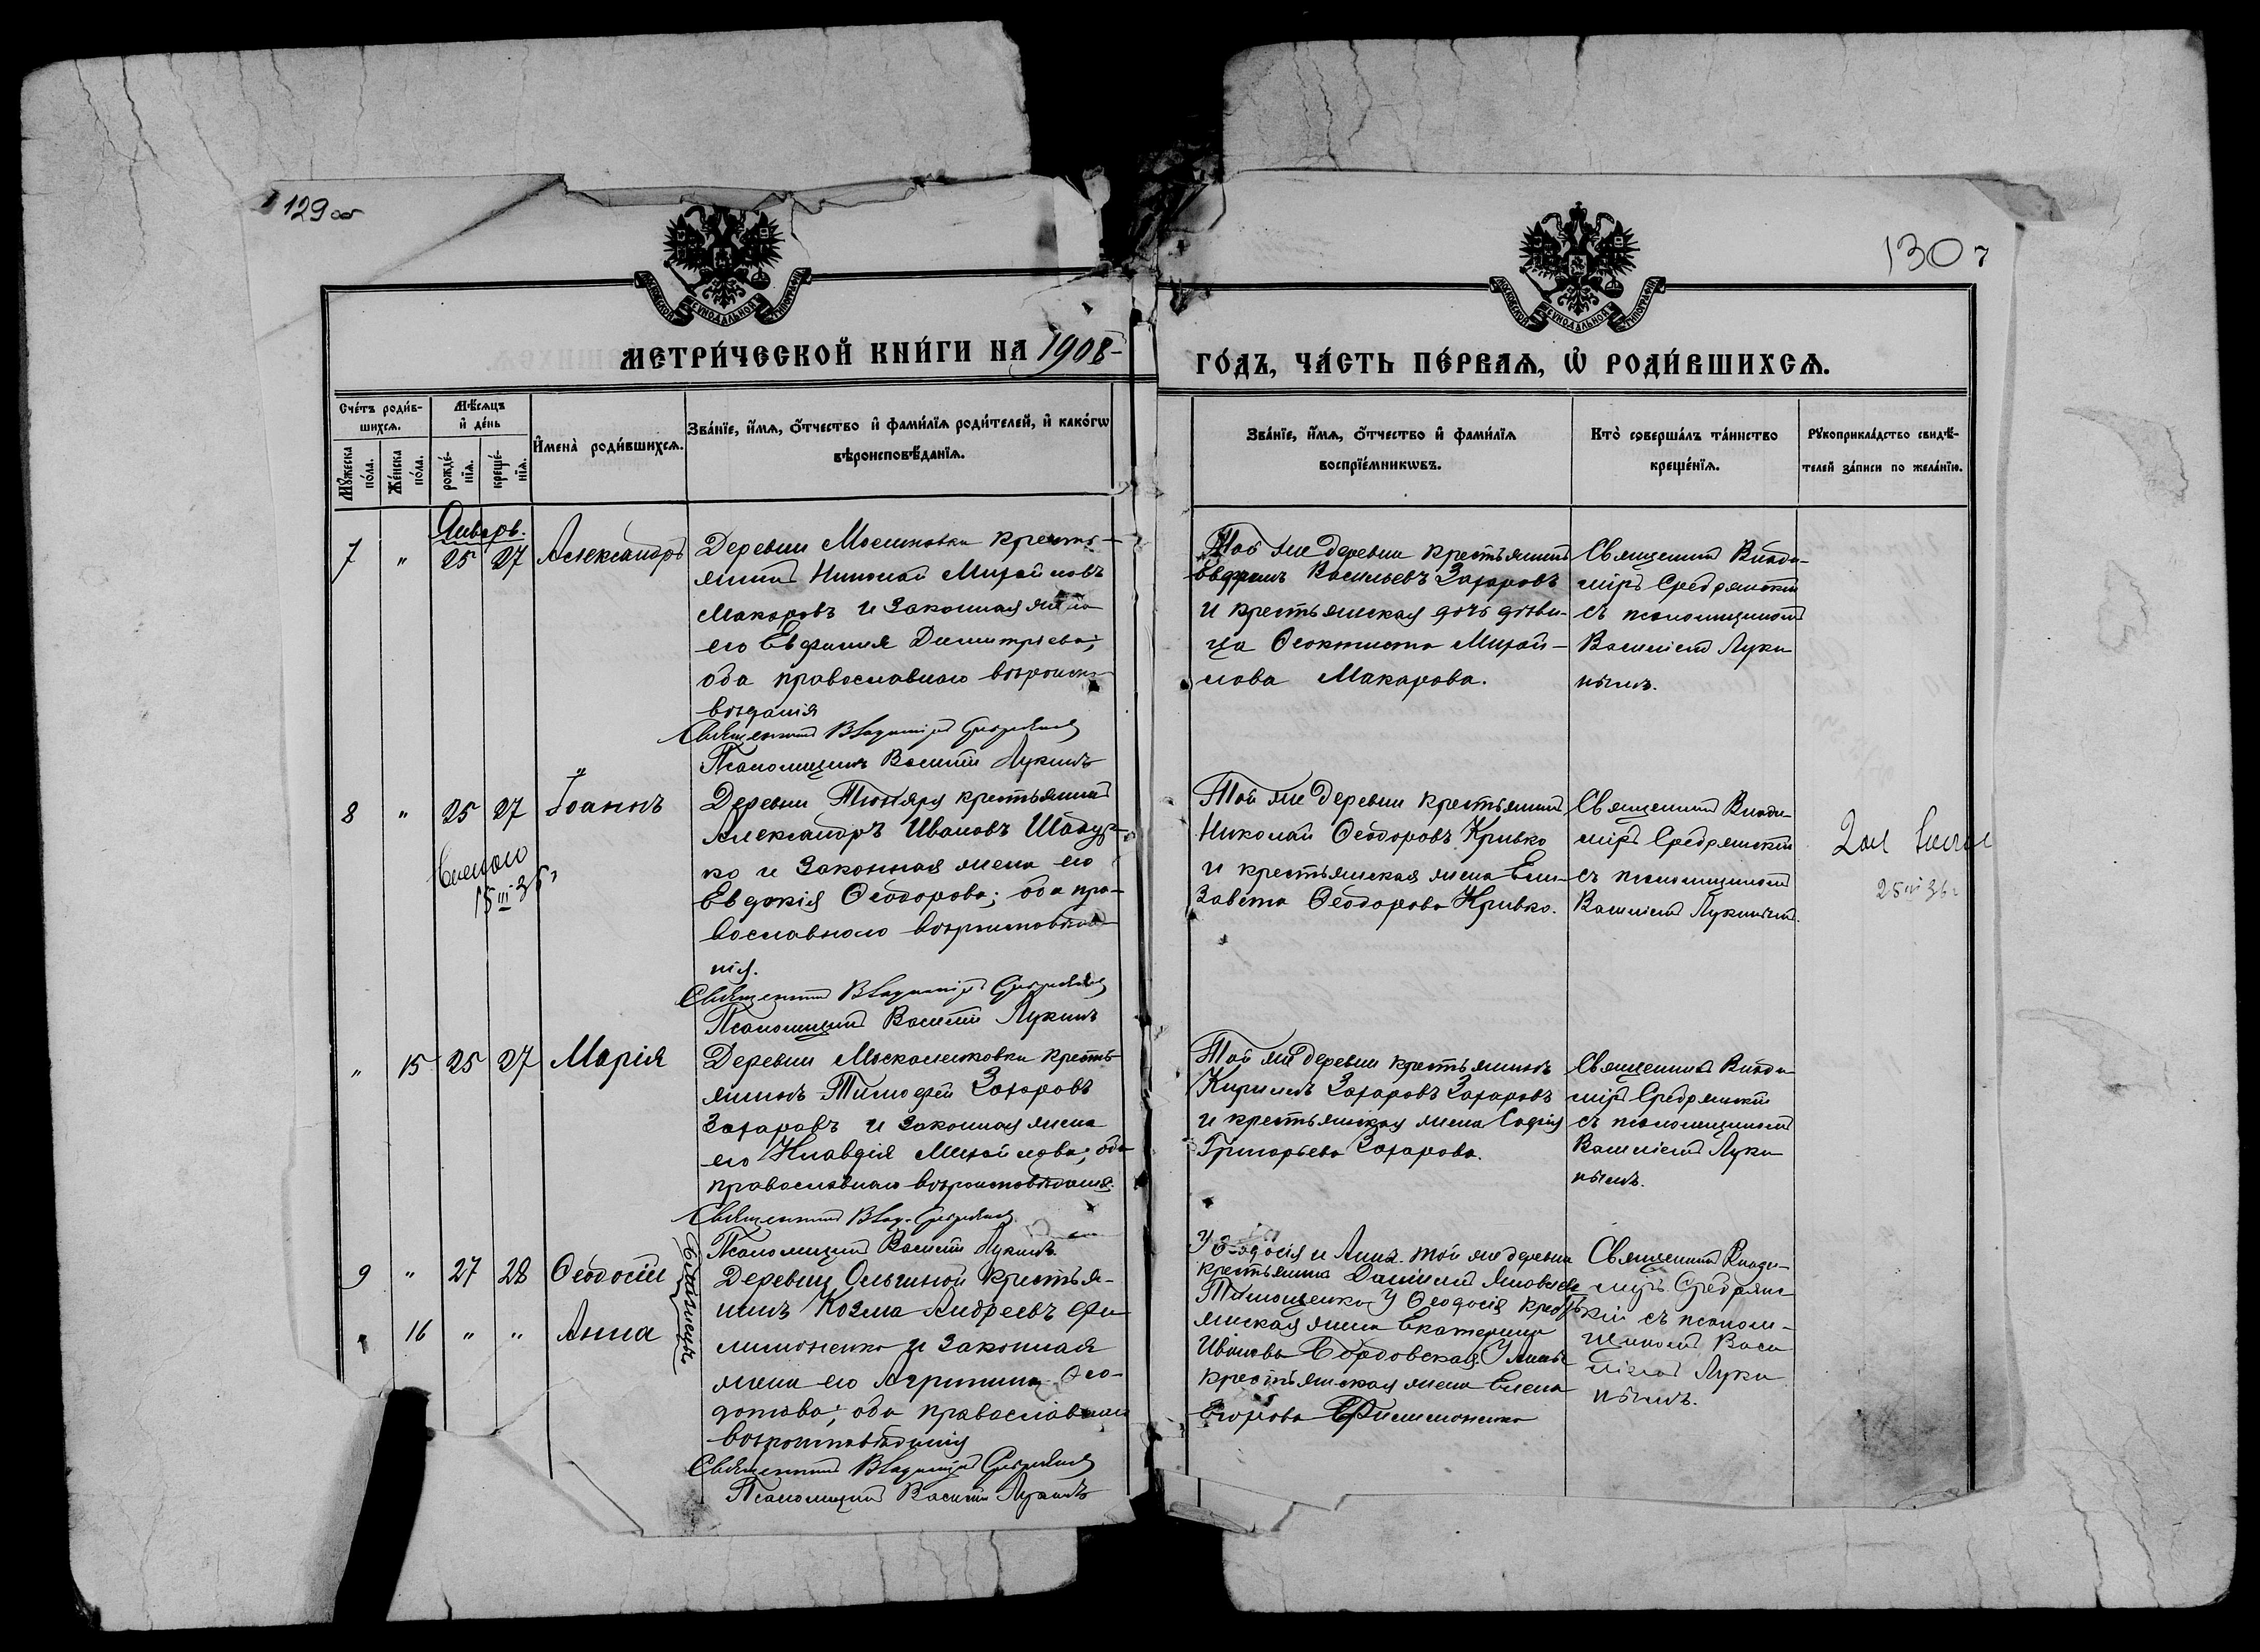 129 об
130
7
МОСКОВСКОЙ СУНОДАЛЬНОЙ ТИПОГРАФІИ
МОСКОВСКОЙ СУНОДАЛЬНОЙ ТИПОГРАФІИ
МЕТРИ́ЧЕСКОЙ КНИ́ГИ НА 1908
ГО́ДЪ, ЧА́СТЬ ПЕ́РВАѦ, Ѡ҆ РОДИ́ВШИХСѦ.
Сче́тъ роди́в-
шихсѧ.
Мѣ́сѧцъ
и҆ де́нь
И҆мена̀ роди́вшихсѧ.
Зва́нїе, и҆́мѧ, ѻ҆́тчество и҆ фами́лїѧ роди́телей, и҆ како́гѡ
вѣроисповѣ́данїѧ.
Мꙋ́жеска
по́ла.
Же́нска
по́ла.
рожде́-
нїѧ.
креще́-
нїѧ.
Зва́нїе, и҆́мѧ, ѻ҆́тчество и҆ фами́лїѧ
воспрїе́мникѡвъ.
Кто̀ соверша́лъ та́инство
креще́нїѧ.
Рꙋкоприкла́дство свидѣ́-
телей за́писи по жела́нїю.
Январь.
7 " 25 27 Александръ
Деревни кресть-
янинъ Николай Михайловъ
Макаровъ и законная жена
его Евфимия Димитріева;
оба православнаго вѣроиспо-
вѣданія
Священникъ Владиміръ Сребрянскій
Псаломщикъ Василій Лукинъ
Той же деревни крестьянинъ
Васильевъ Захаровъ
и крестьянская дочь дѣви-
ца Феоктиста Михай-
лова Макарова.
Священникъ Влади-
міръ Сребрянскій
съ псаломщикомъ
Василіемъ Луки
нымъ.
8 " 25 27 Іоаннъ
15 III 36 г
Деревни крестьянинъ
Александръ Ивановъ
ко и законная жена его
Евдокія Ѳеодорова; оба пра-
вославнаго вѣроисповѣда
нія.
Священникъ Владиміръ Сребрянскій
Псаломщикъ Василій Лукинъ
Той же деревни крестьянинъ
Николай Ѳеодоровъ Кривко
и крестьянская жена Ели-
завета Ѳеодорова Кривко.
Священникъ Влади-
міръ Сребрянскій
съ псаломщикомъ
Василіемъ Лукинымъ.
25 III 36 г
" 15 25 27 Марія
Деревни Москалиновки кресть-
янинъ Тимофей Захаровъ
Захаровъ и законная жена
его Клавдія Михайлова; оба
православнаго вѣроисповѣданія.
Священникъ Влад. Сребрянскій
Псаломщикъ Василій Лукинъ
Той же деревни крестьянинъ
Кириллъ Захаровъ Захаровъ
и крестьянская жена Софія
Григорьева Захарова.
Священникъ Влади
міръ Сребрянскій
съ псаломщикомъ
Василіемъ Луки
нымъ.
9 " 27 28 Ѳеодосій
" 16 " " Анна
близнецы
Деревни Ольгиной крестья-
нинъ Козма Андреевъ Фи
лимоненко и законная
жена его Агрипина Ѳео-
дотова; оба православнаго
вѣроисповѣданія
Священникъ Владиміръ Сребрянскій
Псаломщикъ Василій Лукинъ
У Ѳеодосія и Анны той же деревни
крестьянинъ Даніилъ Яковлевъ
Тимощенко, У Ѳеодосія кресть
янская жена Екатерина
Иванова У Анны
крестьянская жена Елена
Егорова Филимоненко
Священникъ Влади-
міръ Сребрянс
кій съ псалом-
щикомъ Васи
ліемъ Луки
нымъ.